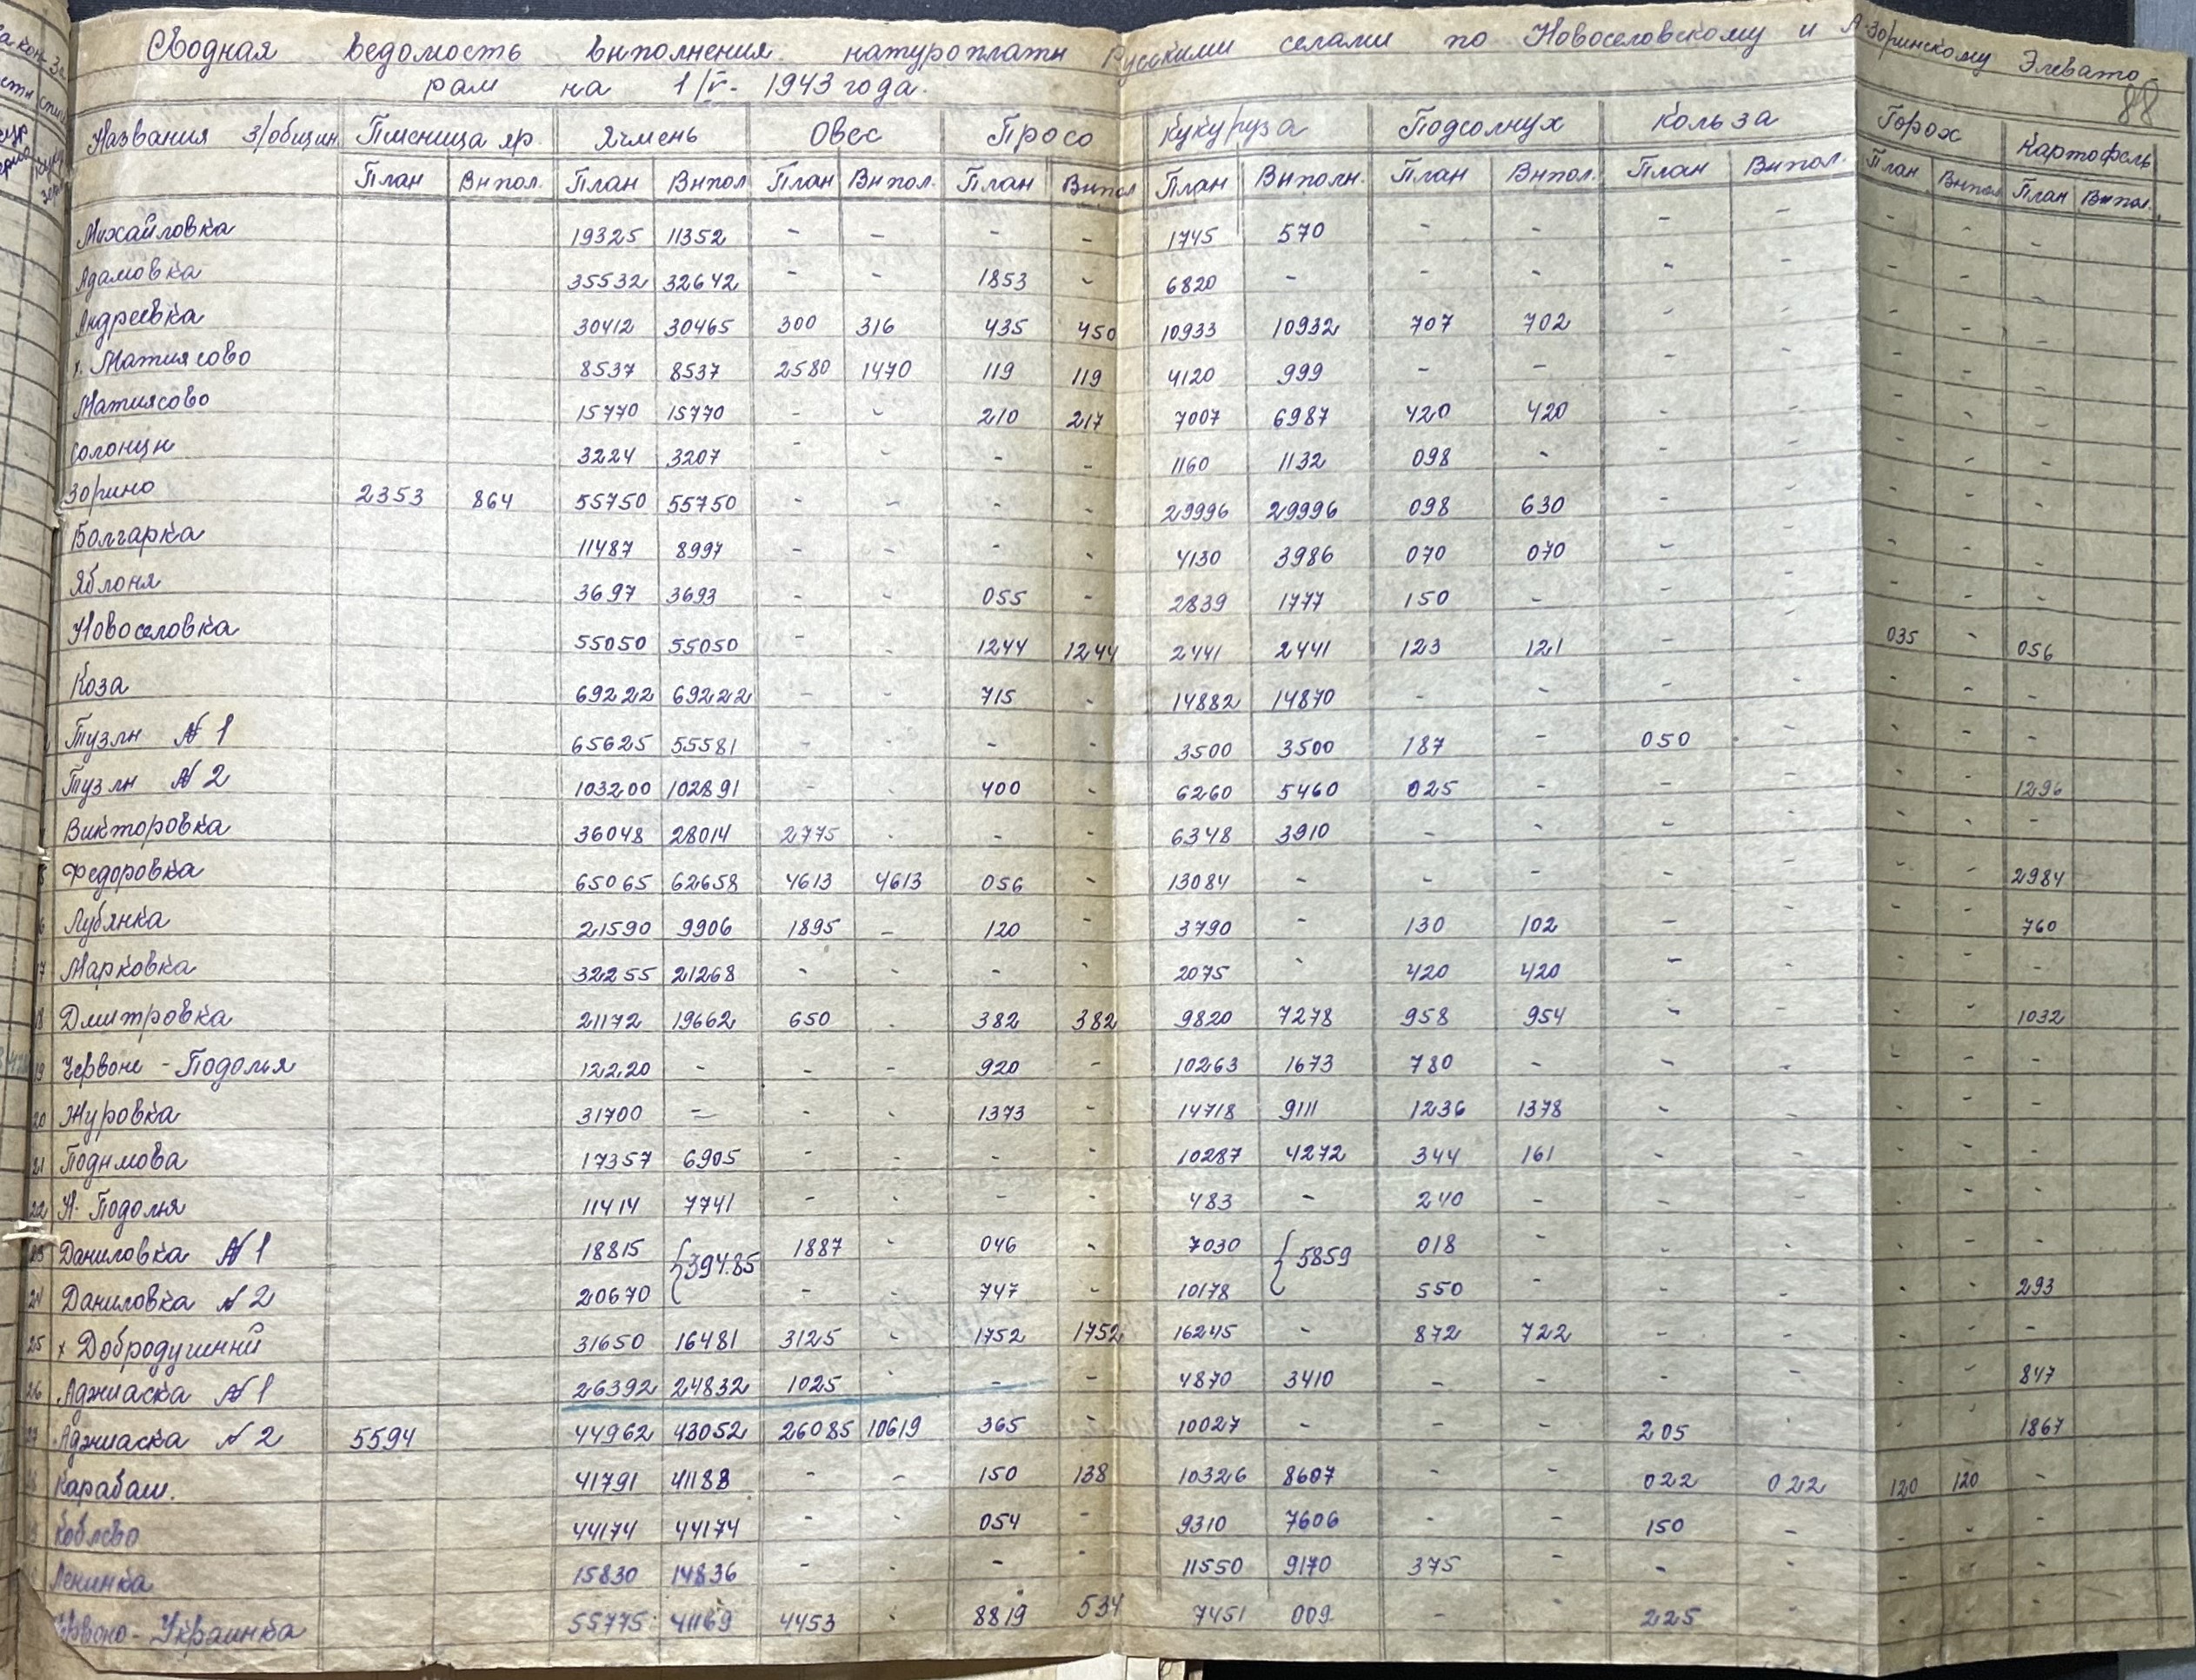 Сводная ведомость выполнения натуроплаты Русскими селами по Новоселовскому и А-Зоринскому Элевато-
рам на 1/V- 1943 года.
88
Названия з/общин. Пшеница яр. Ячмень Овес Просо Кукуруза Подсолнух Кользa Горох Картофель
План Выпол. План Выпол План Выпол. План Выпол План Выполн. План Выпол. План Выпол. План Выпол План Выпол.
Михайловка 19325 11352 - - - - 1745 570 - - - - - - - -
Адамовка 35532 32642 - - 1853 - 6820 - - - - - - - -
Андреевка 30412 30465 300 316 435 450 10933 10932 707 702 - - - - -
х. Матиясово 8537 8537 2580 1470 119 119 4120 999 - - - - - - -
Матиясово 15770 15770 - - 210 217 7007 6987 420 420 - - - - -
Солонцы 3224 3207 - - - - 1160 1132 098 - - - - - -
Зорино 2353 864 55750 55750 - - - - 29996 29996 098 630 - - - - -
Болгарка 11487 8997 - - - - 4130 3986 070 070 - - - - -
Яблоня 3697 3693 - - 055 - 2839 1777 150 - - - - - -
Новоселовка 55050 55050 - - 1244 1244 2441 2441 123 121 - - 035 - 056
Коза 69222 69222 - - 715 - 14882 14870 - - - - - - -
Тузлы №1 65625 55581 - - - - 3500 3500 187 - 050 - - - -
Тузлы №2 103200 102891 - - 400 - 6260 5460 025 - - - - - 1296
Викторовка 36048 28014 2775 - - - 6348 3910 - - - - - - -
Федоровка 65065 62658 4613 4613 056 - 13084 - - - - - - - 2984
6 Лубянка 21590 9906 1895 - 120 - 3790 - 130 102 - - - - 760
17 Марковка 32255 21268 - - - - 2075 - 420 420 - - - - -
18 Дмитровка 21172 19662 650 - 382 382 9820 7278 958 954 - - - - 1032
19 Червоне - Подолья 12220 - - - 920 - 10263 1673 780 - - - - - -
20 Журовка 31700 - - - 1373 - 14718 9111 1236 1378 - - - - -
21 Подымова 17357 6905 - - - - 10287 4272 344 161 - - - - -
22 Н. Подолья 11414 7741 - - - - 483 - 240 - - - - - -
23 Даниловка №1 18815 {39485 1887 - 046 - 7030 {5859 018 - - - - - -
24 Даниловка №2 20670 - - 747 - 10178 550 - - - - - 293
25 х Добродушный 31650 16481 3125 - 1752 1752 16245 - 872 722 - - - - -
26 Аджиаска №1 26392 24832 1025 - - - 4870 3410 - - - - - - 847
27 Аджиаска №2 5594 44962 43052 26085 10619 365 - 10027 - - - 205 - - - 1867
Карабаш. 41791 41188 - - 150 138 10326 8607 - - 022 022 120 120 -
Коблево 44174 44174 - - 054 - 9310 7606 - - 150 - - - -
Ленинка 15830 14836 - - - - 11550 9170 375 - - - - - -
Червоно - Украинка 55775 41169 4453 - 8819 534 7451 009 - - 225 - - - -